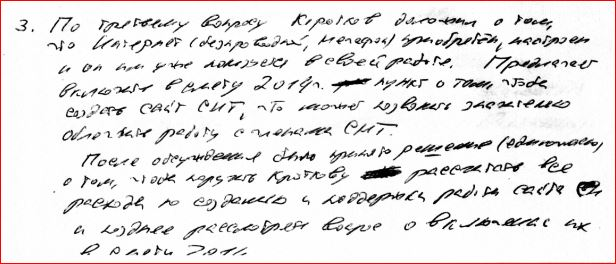 3. По третьему вопросу Кротков доложил о том,
что Интернет (беспроводной, мегафон) приобретён, настроен
и он им уже пользуется в своей работе. Предлагает
включить в смету 2019г. пункт о том, чтобы
создать сайт СНТ, что может позволить значительно
облегчить работу с членами СНТ.
После обсуждения было принято решение (единогласно)
о том, чтобы поручить Кроткову рассчитать все
расходы по созданию и поддержки работы сайта
и позднее рассмотрен вопрос о включении их
в смету 201